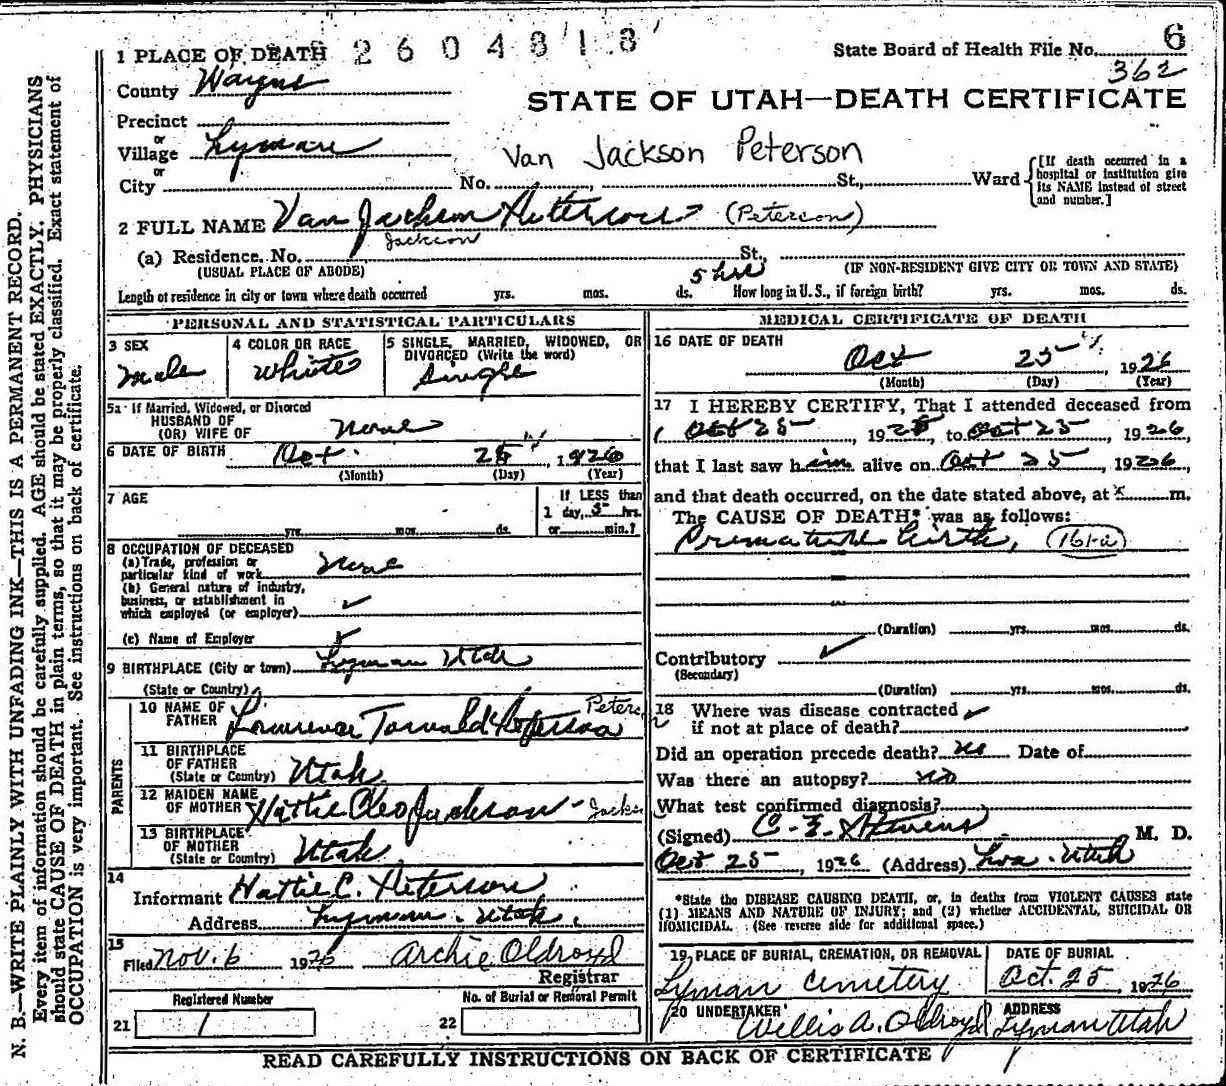 1 PLACE OF DEATH 2604818
State Board of Health File No. 6
362
County Wayne
STATE OF UTAH—DEATH CERTIFICATE
Precinct
or
Village Lyman
Van Jackson Peterson
or
City No. , St., Ward
[If death occurred in a hospital or institution give its NAME instead of street and number.]
2 FULL NAME Van Jackson Peterson (Peterson)
Jackson
(a) Residence. No. St.,
(USUAL PLACE OF ABODE) (IF NON-RESIDENT GIVE CITY OR TOWN AND STATE)
5 hrs
Length of residence in city or town where death occurred yrs. mos. ds. How long in U.S., if foreign birth? yrs. mos. ds.
PERSONAL AND STATISTICAL PARTICULARS
3 SEX
male
4 COLOR OR RACE
White
5 SINGLE, MARRIED, WIDOWED, OR
DIVORCED (Write the word)
Single
5a If Married, Widowed, or Divorced
HUSBAND OF
(OR) WIFE OF None
6 DATE OF BIRTH Oct. 25, 1926
(Month) (Day) (Year)
7 AGE
yrs. mos. ds.
If LESS than
1 day, 5 hrs.
or min.?
8 OCCUPATION OF DECEASED
(a) Trade, profession or
particular kind of work None
(b) General nature of industry,
business, or establishment in
which employed (or employer) ✓
(c) Name of Employer ✓
9 BIRTHPLACE (City or town) Lyman Utah
(State or Country)
PARENTS
10 NAME OF
FATHER Lawrence Torvald Peterson
Peters
11 BIRTHPLACE
OF FATHER
(State or Country) Utah
12 MAIDEN NAME
OF MOTHER Hattie Cleo Jackson - Jacks
13 BIRTHPLACE
OF MOTHER
(State or Country) Utah
14
Informant Hattie C. Peterson
Address Lyman. Utah.
15
Filed Nov. 6 1926 Archie Oldroyd
Registrar
Registered Number
21 1
No. of Burial or Removal Permit
22
MEDICAL CERTIFICATE OF DEATH
16 DATE OF DEATH
Oct 25 1926
(Month) (Day) (Year)
17 I HEREBY CERTIFY, That I attended deceased from
Oct 25, 1926, to Oct 25, 1926,
that I last saw him alive on Oct 25, 1926,
and that death occurred, on the date stated above, at m.
The CAUSE OF DEATH* was as follows:
Premature birth, (161-a)
(Duration) yrs. mos. ds.
Contributory ✓
(Secondary)
(Duration) yrs. mos. ds.
18 Where was disease contracted ✓
if not at place of death?
Did an operation precede death? no Date of
Was there an autopsy? no
What test confirmed diagnosis?
(Signed) C. E. Stevens M. D.
Oct 25, 1926 (Address) Loa. Utah
*State the DISEASE CAUSING DEATH, or, in deaths from VIOLENT CAUSES state
(1) MEANS AND NATURE OF INJURY; and (2) whether ACCIDENTAL, SUICIDAL OR
HOMICIDAL. (See reverse side for additional space.)
19 PLACE OF BURIAL, CREMATION, OR REMOVAL
Lyman Cemetery
DATE OF BURIAL
Oct. 25, 1926
20 UNDERTAKER
Willis A. Oldroyd
ADDRESS
Lyman Utah
READ CAREFULLY INSTRUCTIONS ON BACK OF CERTIFICATE
N. B.—WRITE PLAINLY WITH UNFADING INK—THIS IS A PERMANENT RECORD.
Every item of information should be carefully supplied. AGE should be stated EXACTLY. PHYSICIANS
should state CAUSE OF DEATH in plain terms, so that it may be properly classified. Exact statement of
OCCUPATION is very important. See instructions on back of certificate.